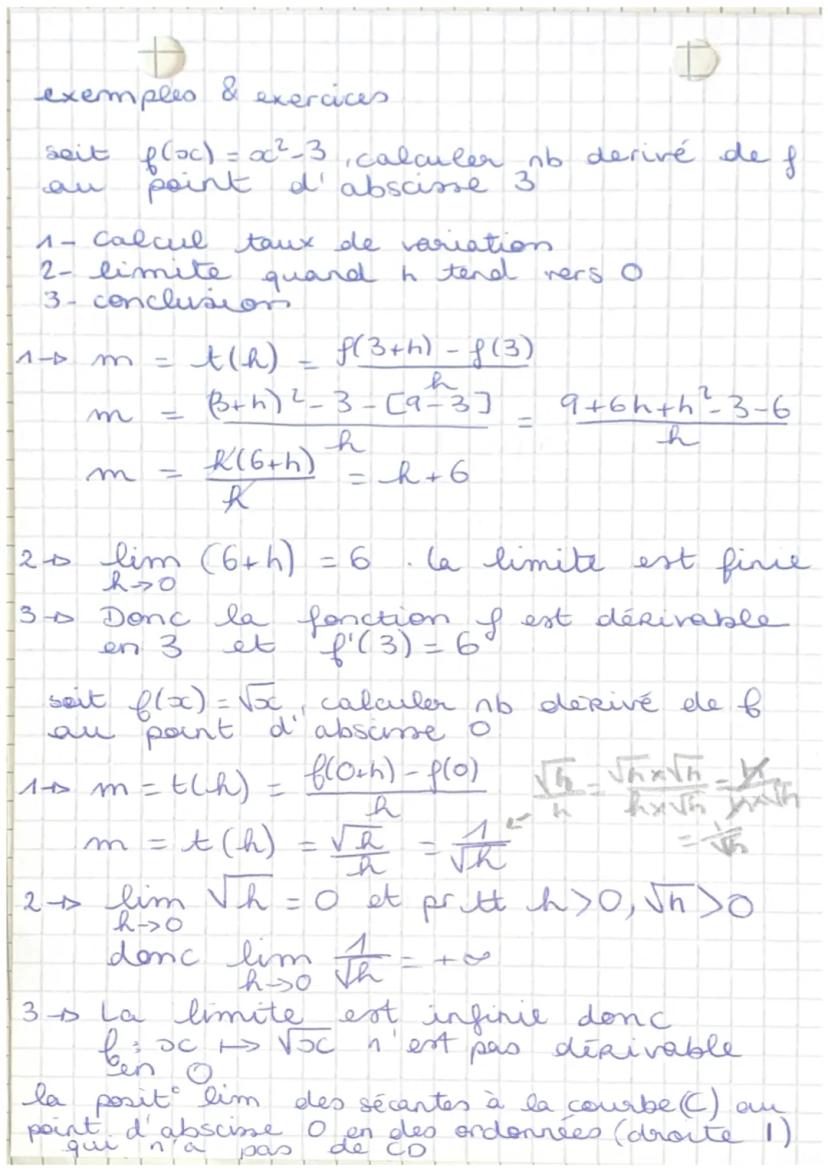 exemples & exercices
soit f(x) = x²-3, calculer nb derivé de f
au point d'abscisse 3
1- Calcul taux de variation
2- limite quand h tend vers 0
3- conclusion
1→ m = t(h) = f(3+h) - f(3) / h
m = (3+h)² - 3 - [9-3] / h = 9+6h+h²-3-6 / h
m = h(6+h) / h = h+6
2→ lim h→0 (6+h) = 6 . la limite est finie
3→ Donc la fonction f est dérivable
en 3 et f'(3) = 6
soit f(x) = √x, calculer nb derivé de f
au point d'abscisse 0
1→ m = t(h) = f(0+h) - f(0) / h
√h / h = √h×√h / h×√h = h / h×√h
= 1 / √h
m = t(h) = √h / h = 1 / √h ←
2→ lim h→0 √h = 0 et pr tt h>0, √h>0
donc lim h→0 1/√h = +∞
3→ La limite est infinie donc
f : x ↦ √x n'est pas dérivable
en 0
la posit° lim des sécantes à la courbe (C) au
point d'abscisse 0 en des ordonnées (droite 1)
qui n'a pas de CD